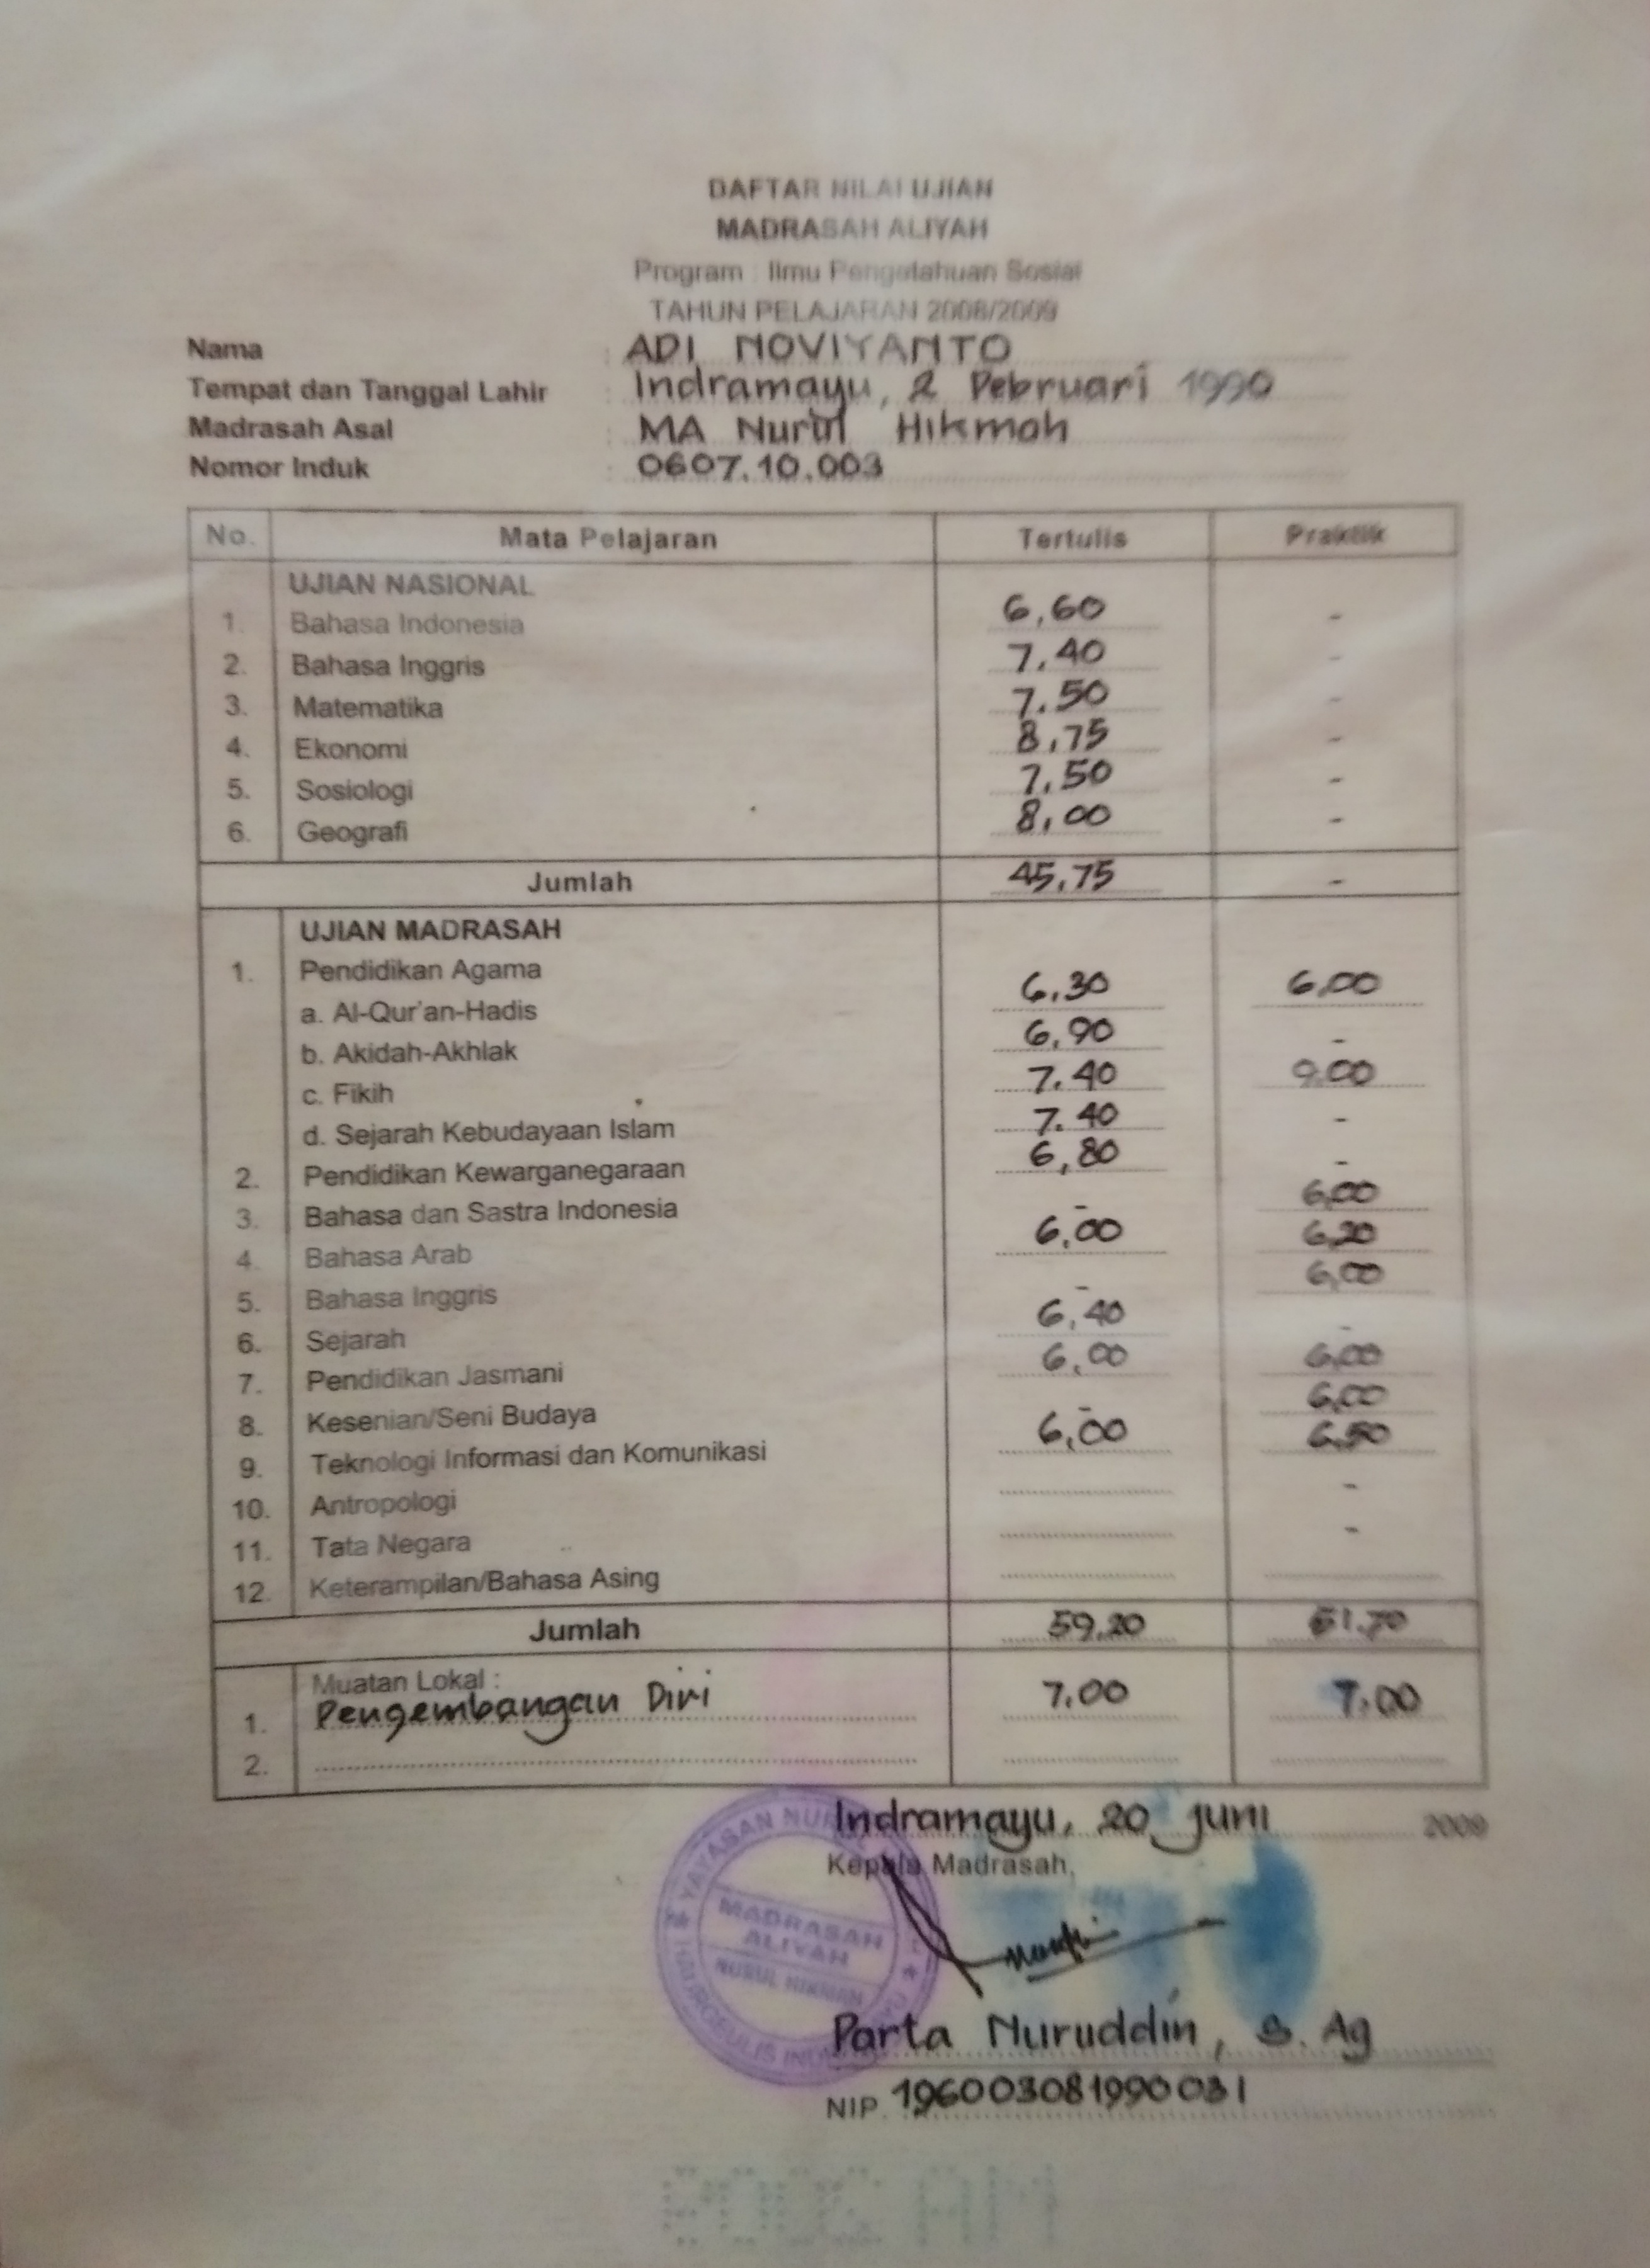 DAFTAR NILAI UJIAN
MADRASAH ALIYAH
Program : Ilmu Pengetahuan Sosial
TAHUN PELAJARAN 2008/2009
Nama : ADI NOVIYANTO
Tempat dan Tanggal Lahir : Indramayu, 2 Pebruari 1990
Madrasah Asal : MA Nurul Hikmah
Nomor Induk : 0607.10.003
No. Mata Pelajaran Tertulis Praktik
UJIAN NASIONAL
1. Bahasa Indonesia 6,60 -
2. Bahasa Inggris 7,40 -
3. Matematika 7,50 -
4. Ekonomi 8,75 -
5. Sosiologi 7,50 -
6. Geografi 8,00 -
Jumlah 45,75 -
UJIAN MADRASAH
1. Pendidikan Agama
a. Al-Qur'an-Hadis 6,30 6,00
b. Akidah-Akhlak 6,90 -
c. Fikih 7.40 9.00
d. Sejarah Kebudayaan Islam 7.40 -
2. Pendidikan Kewarganegaraan 6,80 -
3. Bahasa dan Sastra Indonesia - 6,00
4. Bahasa Arab 6,00 6,20
5. Bahasa Inggris - 6,00
6. Sejarah 6,40 -
7. Pendidikan Jasmani 6,00 6,00
8. Kesenian/Seni Budaya - 6,00
9. Teknologi Informasi dan Komunikasi 6,00 6,50
10. Antropologi -
11. Tata Negara -
12. Keterampilan/Bahasa Asing
Jumlah 59,20 51.70
Muatan Lokal :
1. Pengembangan Diri 7.00 7.00
2.
Indramayu, 20 Juni 2009
Kepala Madrasah,
YAYASAN NURUL
MADRASAH
ALIYAH
NURUL HIKMAH
HAURGEULIS
Parta Nuruddin, S. Ag
NIP. 196003081990031